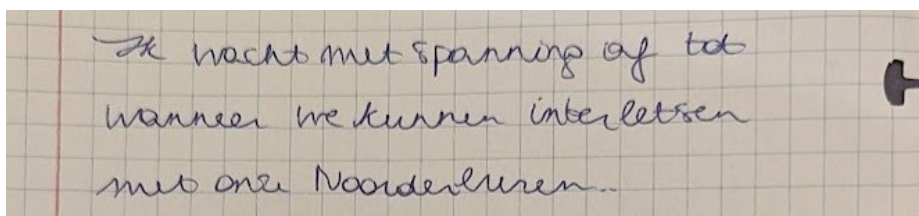 Ik wacht met spanning af tot
wanneer we kunnen interletsen
met onze Noorderburen..